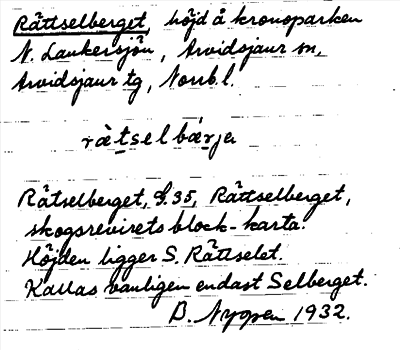 Rättselberget, höjd å kronoparken
N. Laukersjön, Arvidsjaur sn,
Arvidsjaur tg, Norrb. l.
rätselbärje
Rätselberget, G. 35, Rättselberget,
skogsrevirets block-karta.
Höjden ligger S. Rättselet.
Kallas vanligen endast Selberget.
B. Nygren 1932.